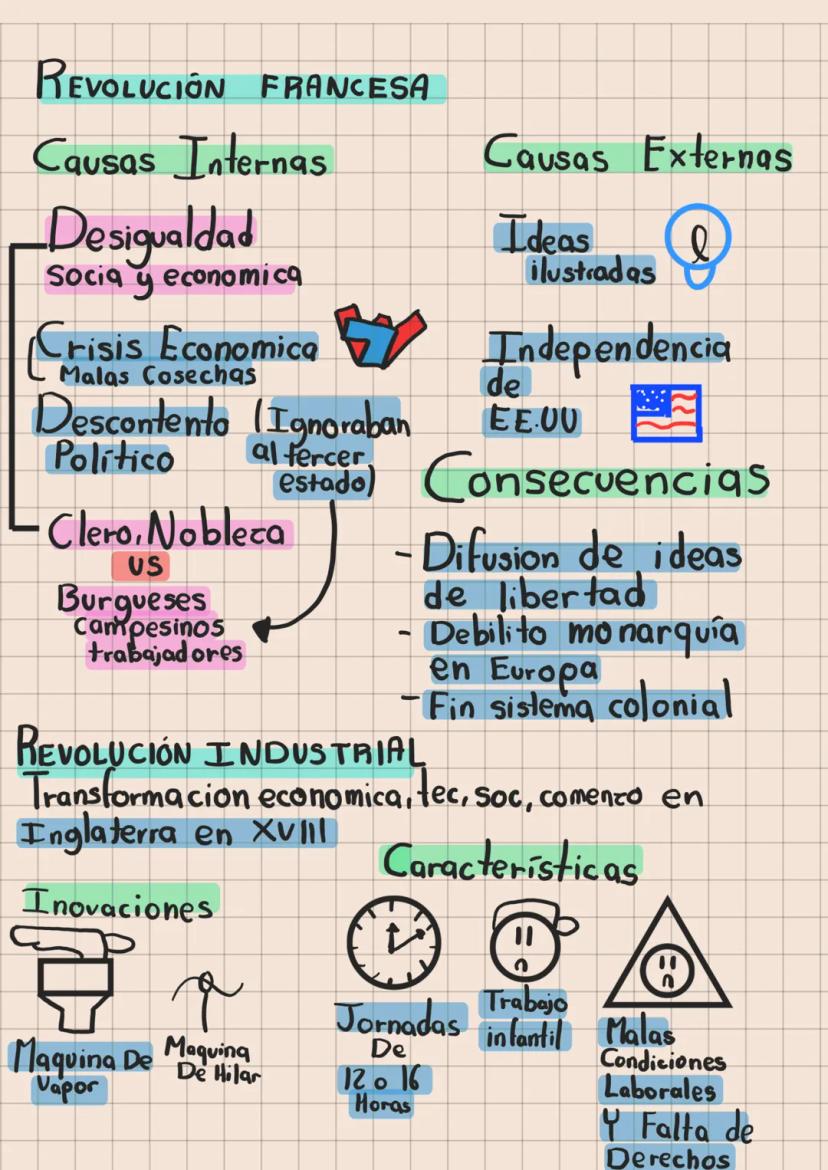 REVOLUCIÓN FRANCESA
Causas Internas
Desigualdad
socia y economica
Crisis Economica
Malas Cosechas
Descontento
Político
(Ignoraban
al tercer
estado)
Clero, Nobleza
vs
Burgueses
campesinos
trabajadores
Causas Externas
Ideas
ilustradas
Independencia
de
EE.UU
Consecuencias
- Difusion de ideas
de libertad
- Debilito monarquía
en Europa
- Fin sistema colonial
REVOLUCIÓN INDUSTRIAL
Transformacion economica, tec, soc, comenzo en
Inglaterra en XVIII
Inovaciones
Maquina De
Vapor
Maquina
De Hilar
Características
Jornadas
De
12 o 16
Horas
Trabajo
infantil
Malas
Condiciones
Laborales
Y Falta de
Derechos